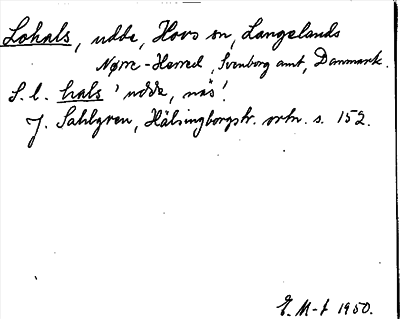 Lohals, udde, Hovs sn, Langelands
Nørre-Herred, Svenborg amt, Danmark.
S. l. hals 'udde, näs'.
J. Sahlgren, Hälsingborgstr. ortn. s. 152.
E. M-t 1950.